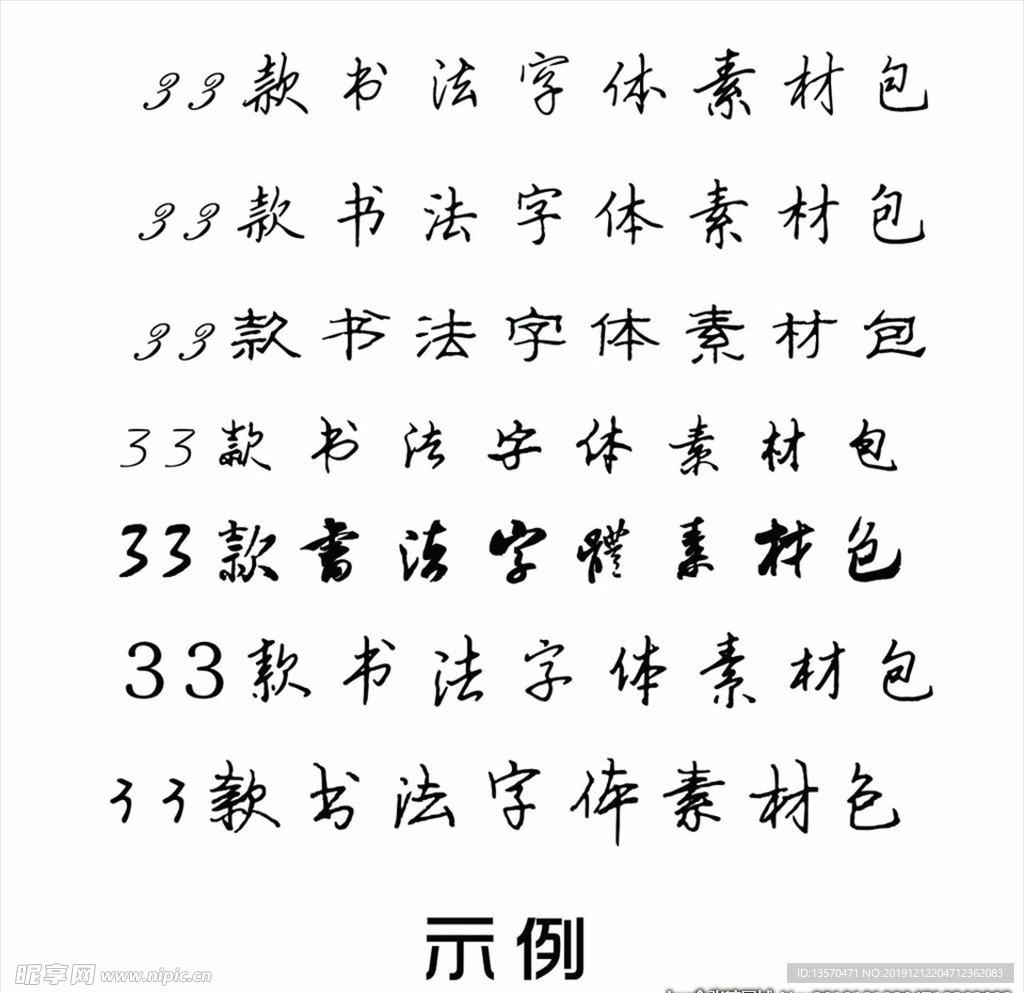 33款书法字体素材包
33款书法字体素材包
33款书法字体素材包
33款书法字体素材包
33款書法字體素材包
33款书法字体素材包
33款书法字体素材包
示例
昵享网 www.nipic.cn
ID:13570471 NO:20191212204712362083